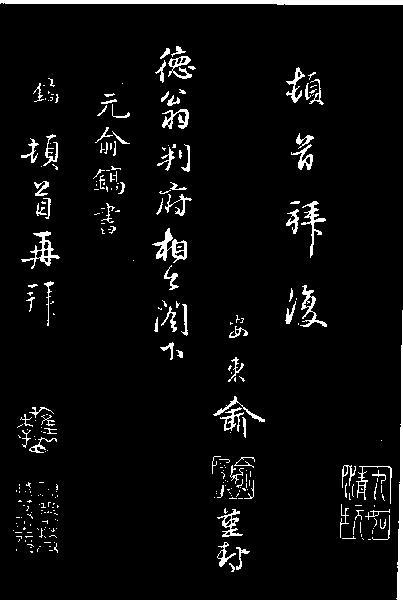 頓首拜復
九如清玩
安東俞
堇封
德翁判府相公閣下
元俞鎬書
鎬頓首再拜